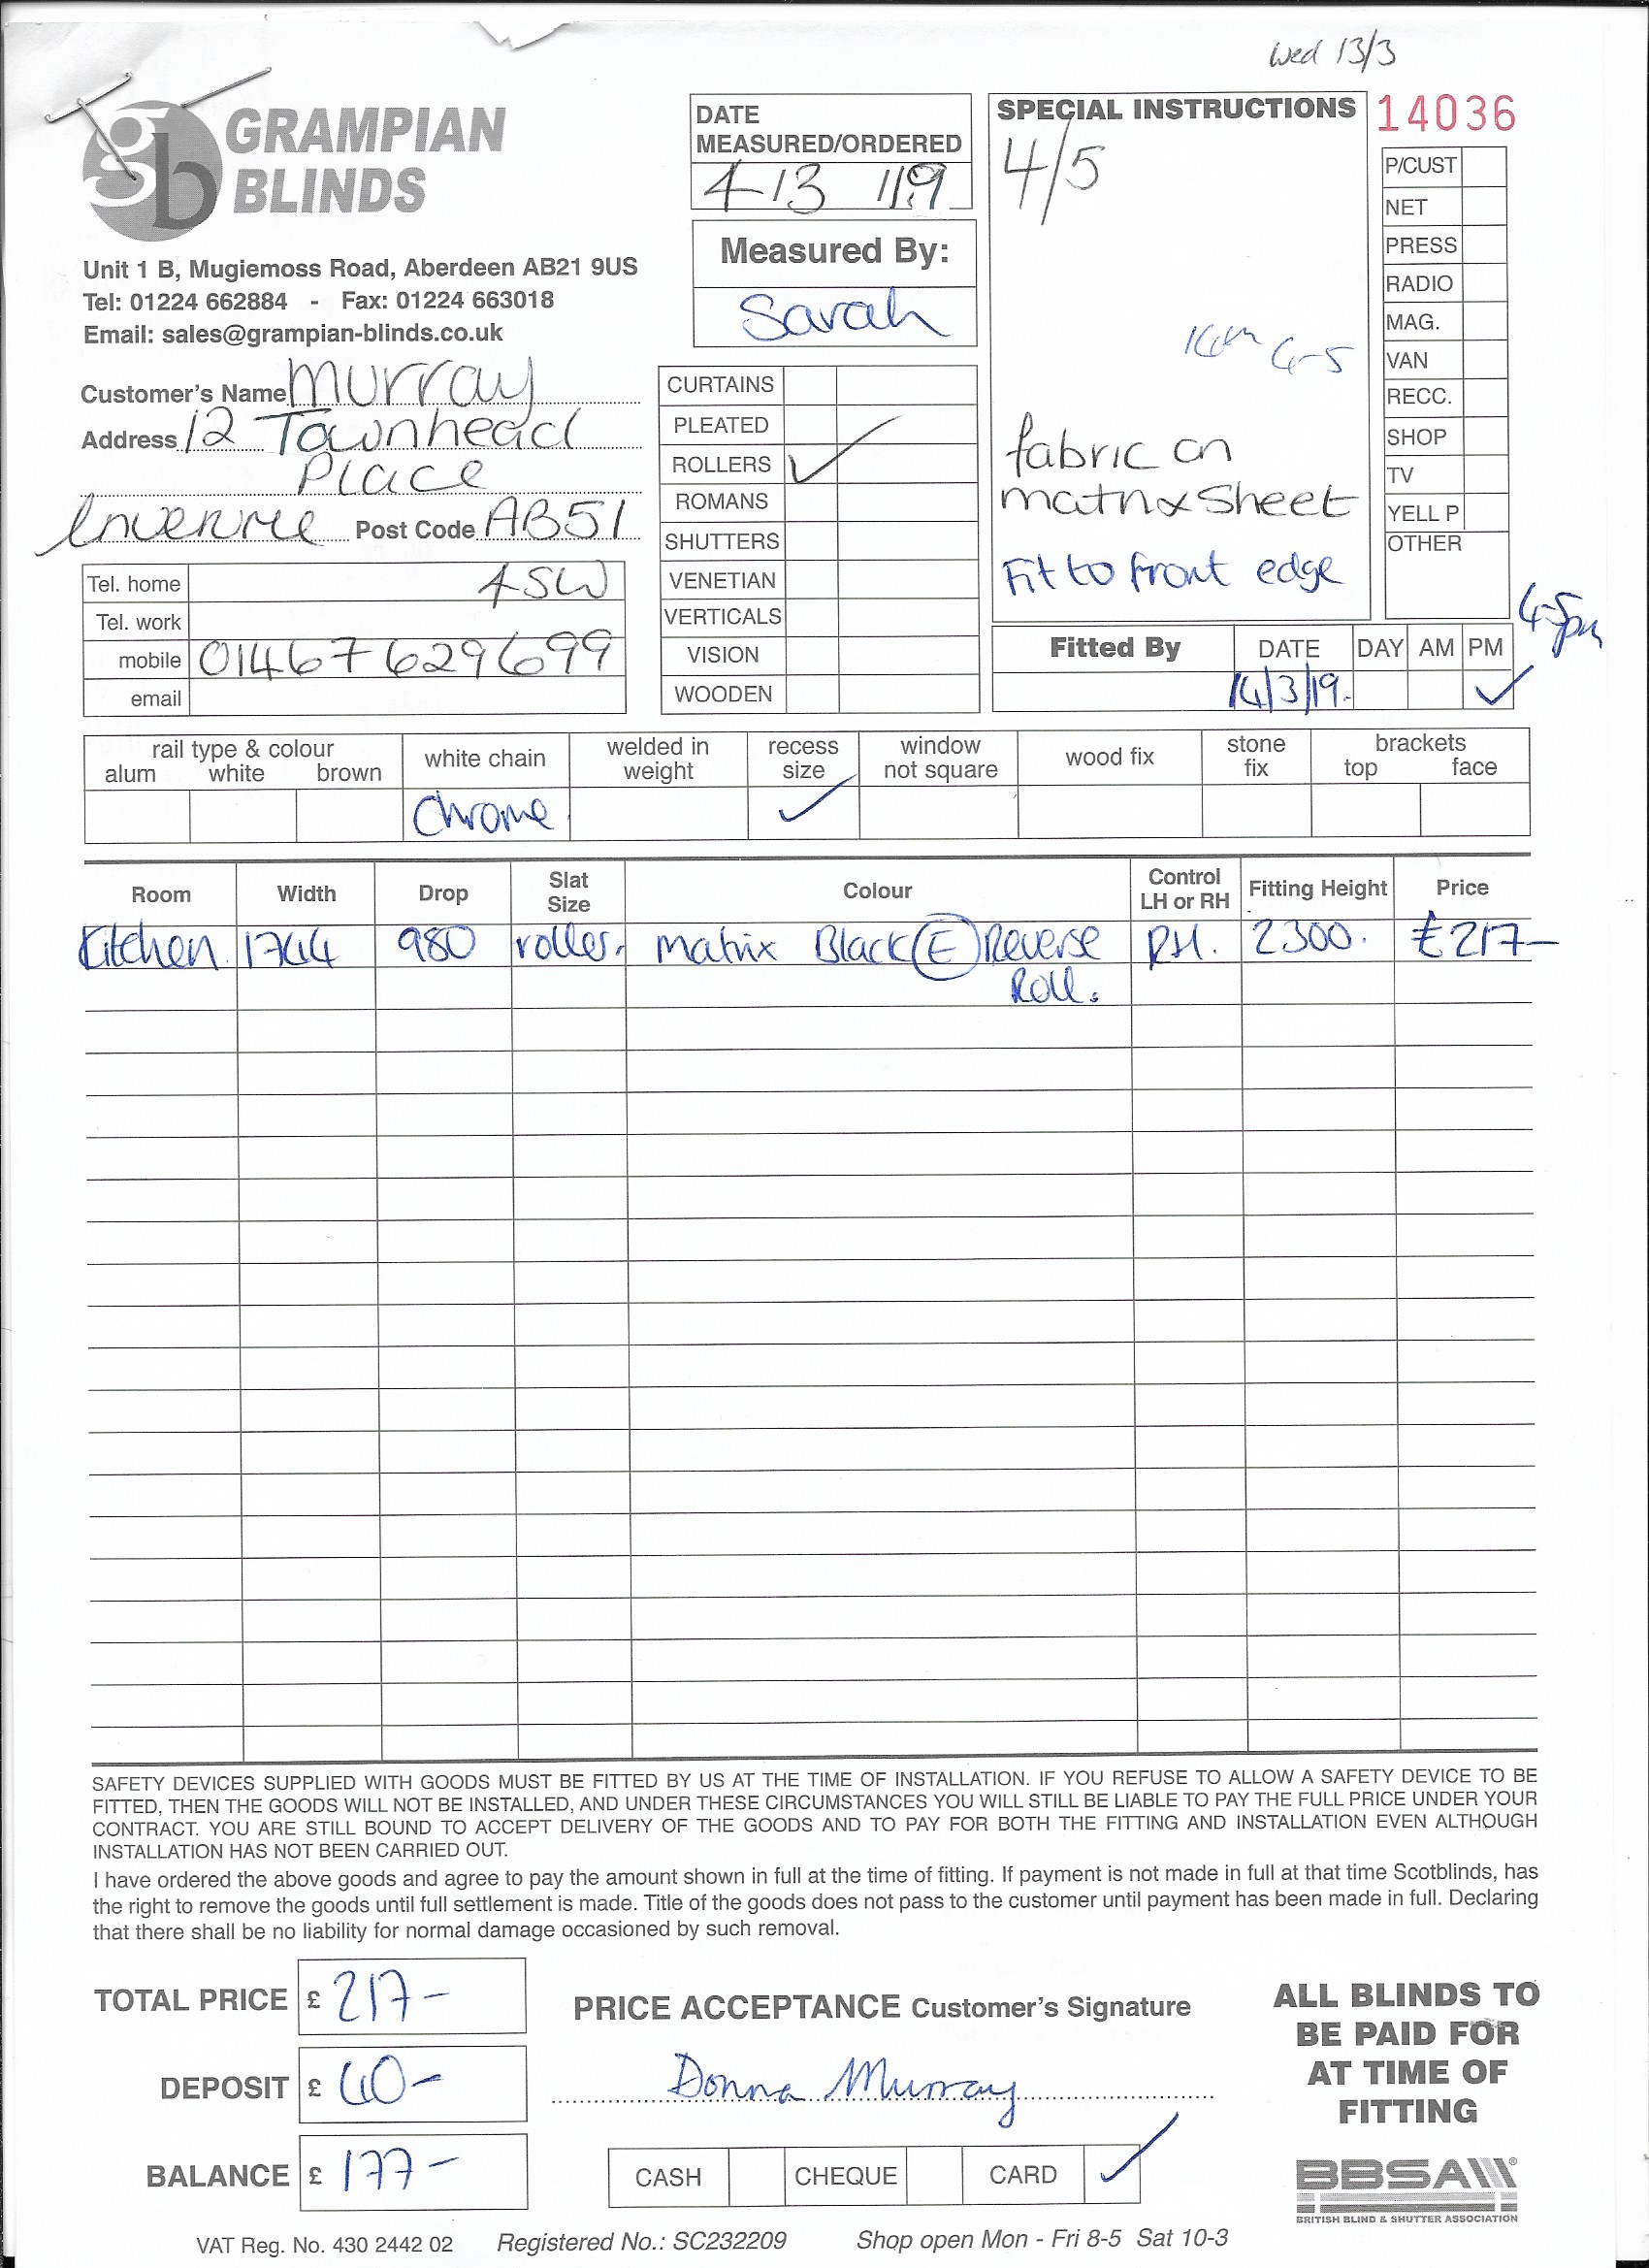 Wed 13/3
gb GRAMPIAN
BLINDS
Unit 1 B, Mugiemoss Road, Aberdeen AB21 9US
Tel: 01224 662884 - Fax: 01224 663018
Email: sales@grampian-blinds.co.uk
DATE
MEASURED/ORDERED
4/3/19
Measured By:
Sarah
SPECIAL INSTRUCTIONS
4/5
14th 4-5
fabric on
matrix sheet
Fit to front edge
14036
P/CUST
NET
PRESS
RADIO
MAG.
VAN
RECC.
SHOP
TV
YELL P
OTHER
Customer's Name Murray
Address 12 Townhead
Place
Inverurie Post Code AB51
Tel. home 4SW
Tel. work
mobile 01467 629699
email
CURTAINS
PLEATED
ROLLERS ✓
ROMANS
SHUTTERS
VENETIAN
VERTICALS
VISION
WOODEN
4-5pm
Fitted By DATE DAY AM PM
14/3/19. ✓
rail type & colour white chain welded in weight recess size window not square wood fix stone fix brackets
alum white brown top face
Chrome ✓
Room Width Drop Slat Size Colour Control LH or RH Fitting Height Price
Kitchen 1744 980 roller. Matrix Black (E) Reverse RH. 2300. £217-
Roll.
SAFETY DEVICES SUPPLIED WITH GOODS MUST BE FITTED BY US AT THE TIME OF INSTALLATION. IF YOU REFUSE TO ALLOW A SAFETY DEVICE TO BE
FITTED, THEN THE GOODS WILL NOT BE INSTALLED, AND UNDER THESE CIRCUMSTANCES YOU WILL STILL BE LIABLE TO PAY THE FULL PRICE UNDER YOUR
CONTRACT. YOU ARE STILL BOUND TO ACCEPT DELIVERY OF THE GOODS AND TO PAY FOR BOTH THE FITTING AND INSTALLATION EVEN ALTHOUGH
INSTALLATION HAS NOT BEEN CARRIED OUT.
I have ordered the above goods and agree to pay the amount shown in full at the time of fitting. If payment is not made in full at that time Scotblinds, has
the right to remove the goods until full settlement is made. Title of the goods does not pass to the customer until payment has been made in full. Declaring
that there shall be no liability for normal damage occasioned by such removal.
TOTAL PRICE £ 217-
DEPOSIT £ 40-
BALANCE £ 177-
PRICE ACCEPTANCE Customer's Signature
Donna Murray
CASH CHEQUE CARD ✓
ALL BLINDS TO
BE PAID FOR
AT TIME OF
FITTING
BBSA
BRITISH BLIND & SHUTTER ASSOCIATION
VAT Reg. No. 430 2442 02 Registered No.: SC232209 Shop open Mon - Fri 8-5 Sat 10-3